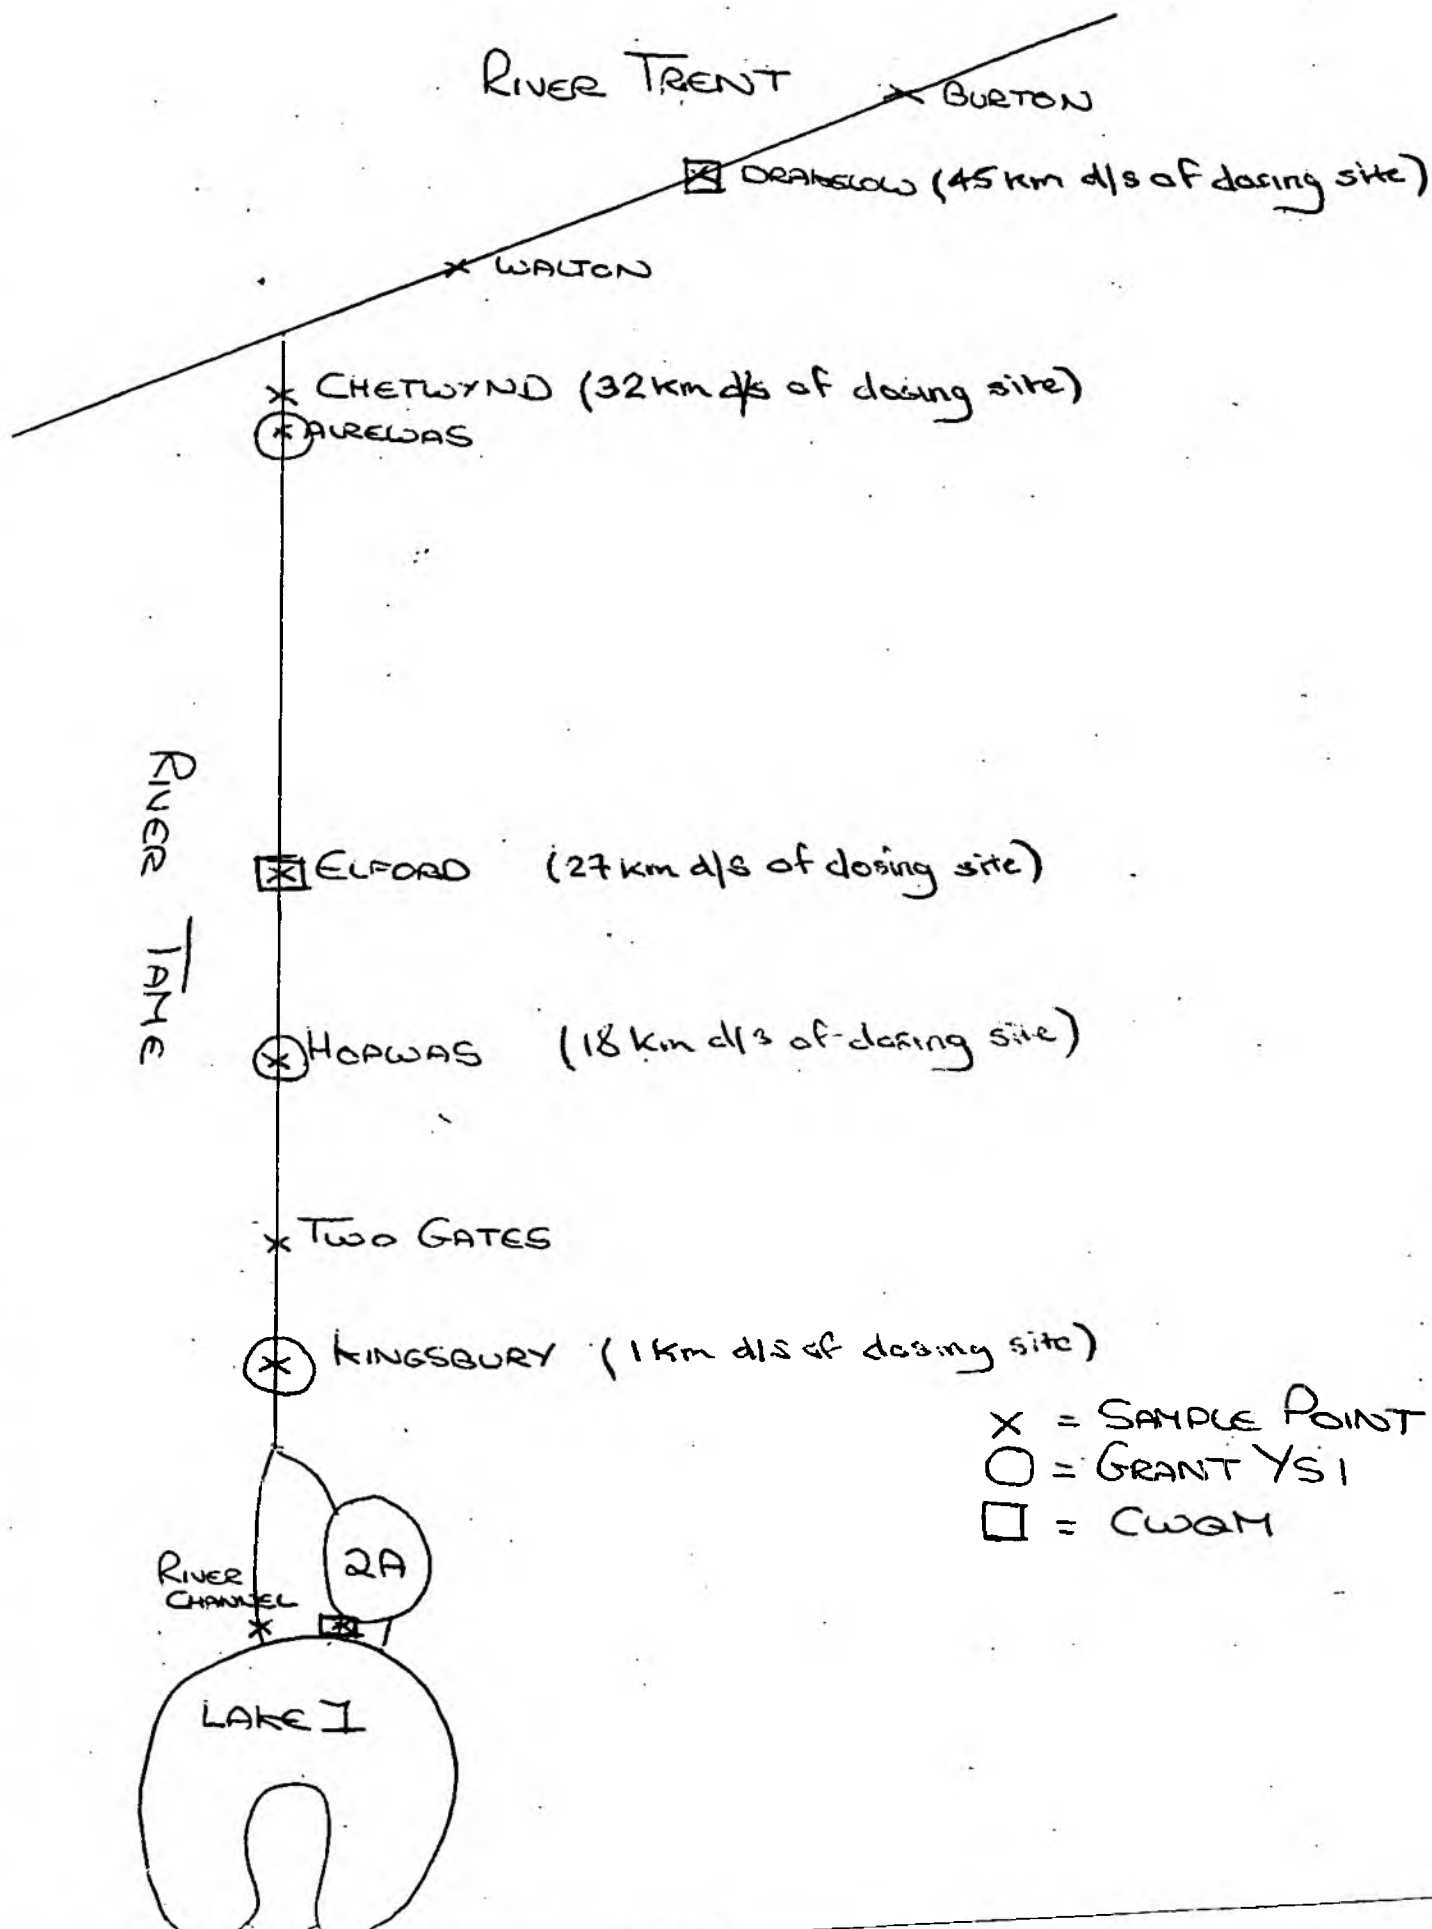 RIVER TRENT
BURTON
DRAKELOW (45 km d/s of dosing site)
WALTON
CHETWYND (32 km d/s of dosing site)
ALREWAS
RIVER TAME
ELFORD (27 km d/s of dosing site)
HOPWAS (18 km d/s of dosing site)
TWO GATES
KINGSBURY (1 km d/s of dosing site)
X = SAMPLE POINT
= GRANT YSI
= CWQM
2A
RIVER
CHANNEL
LAKE 1